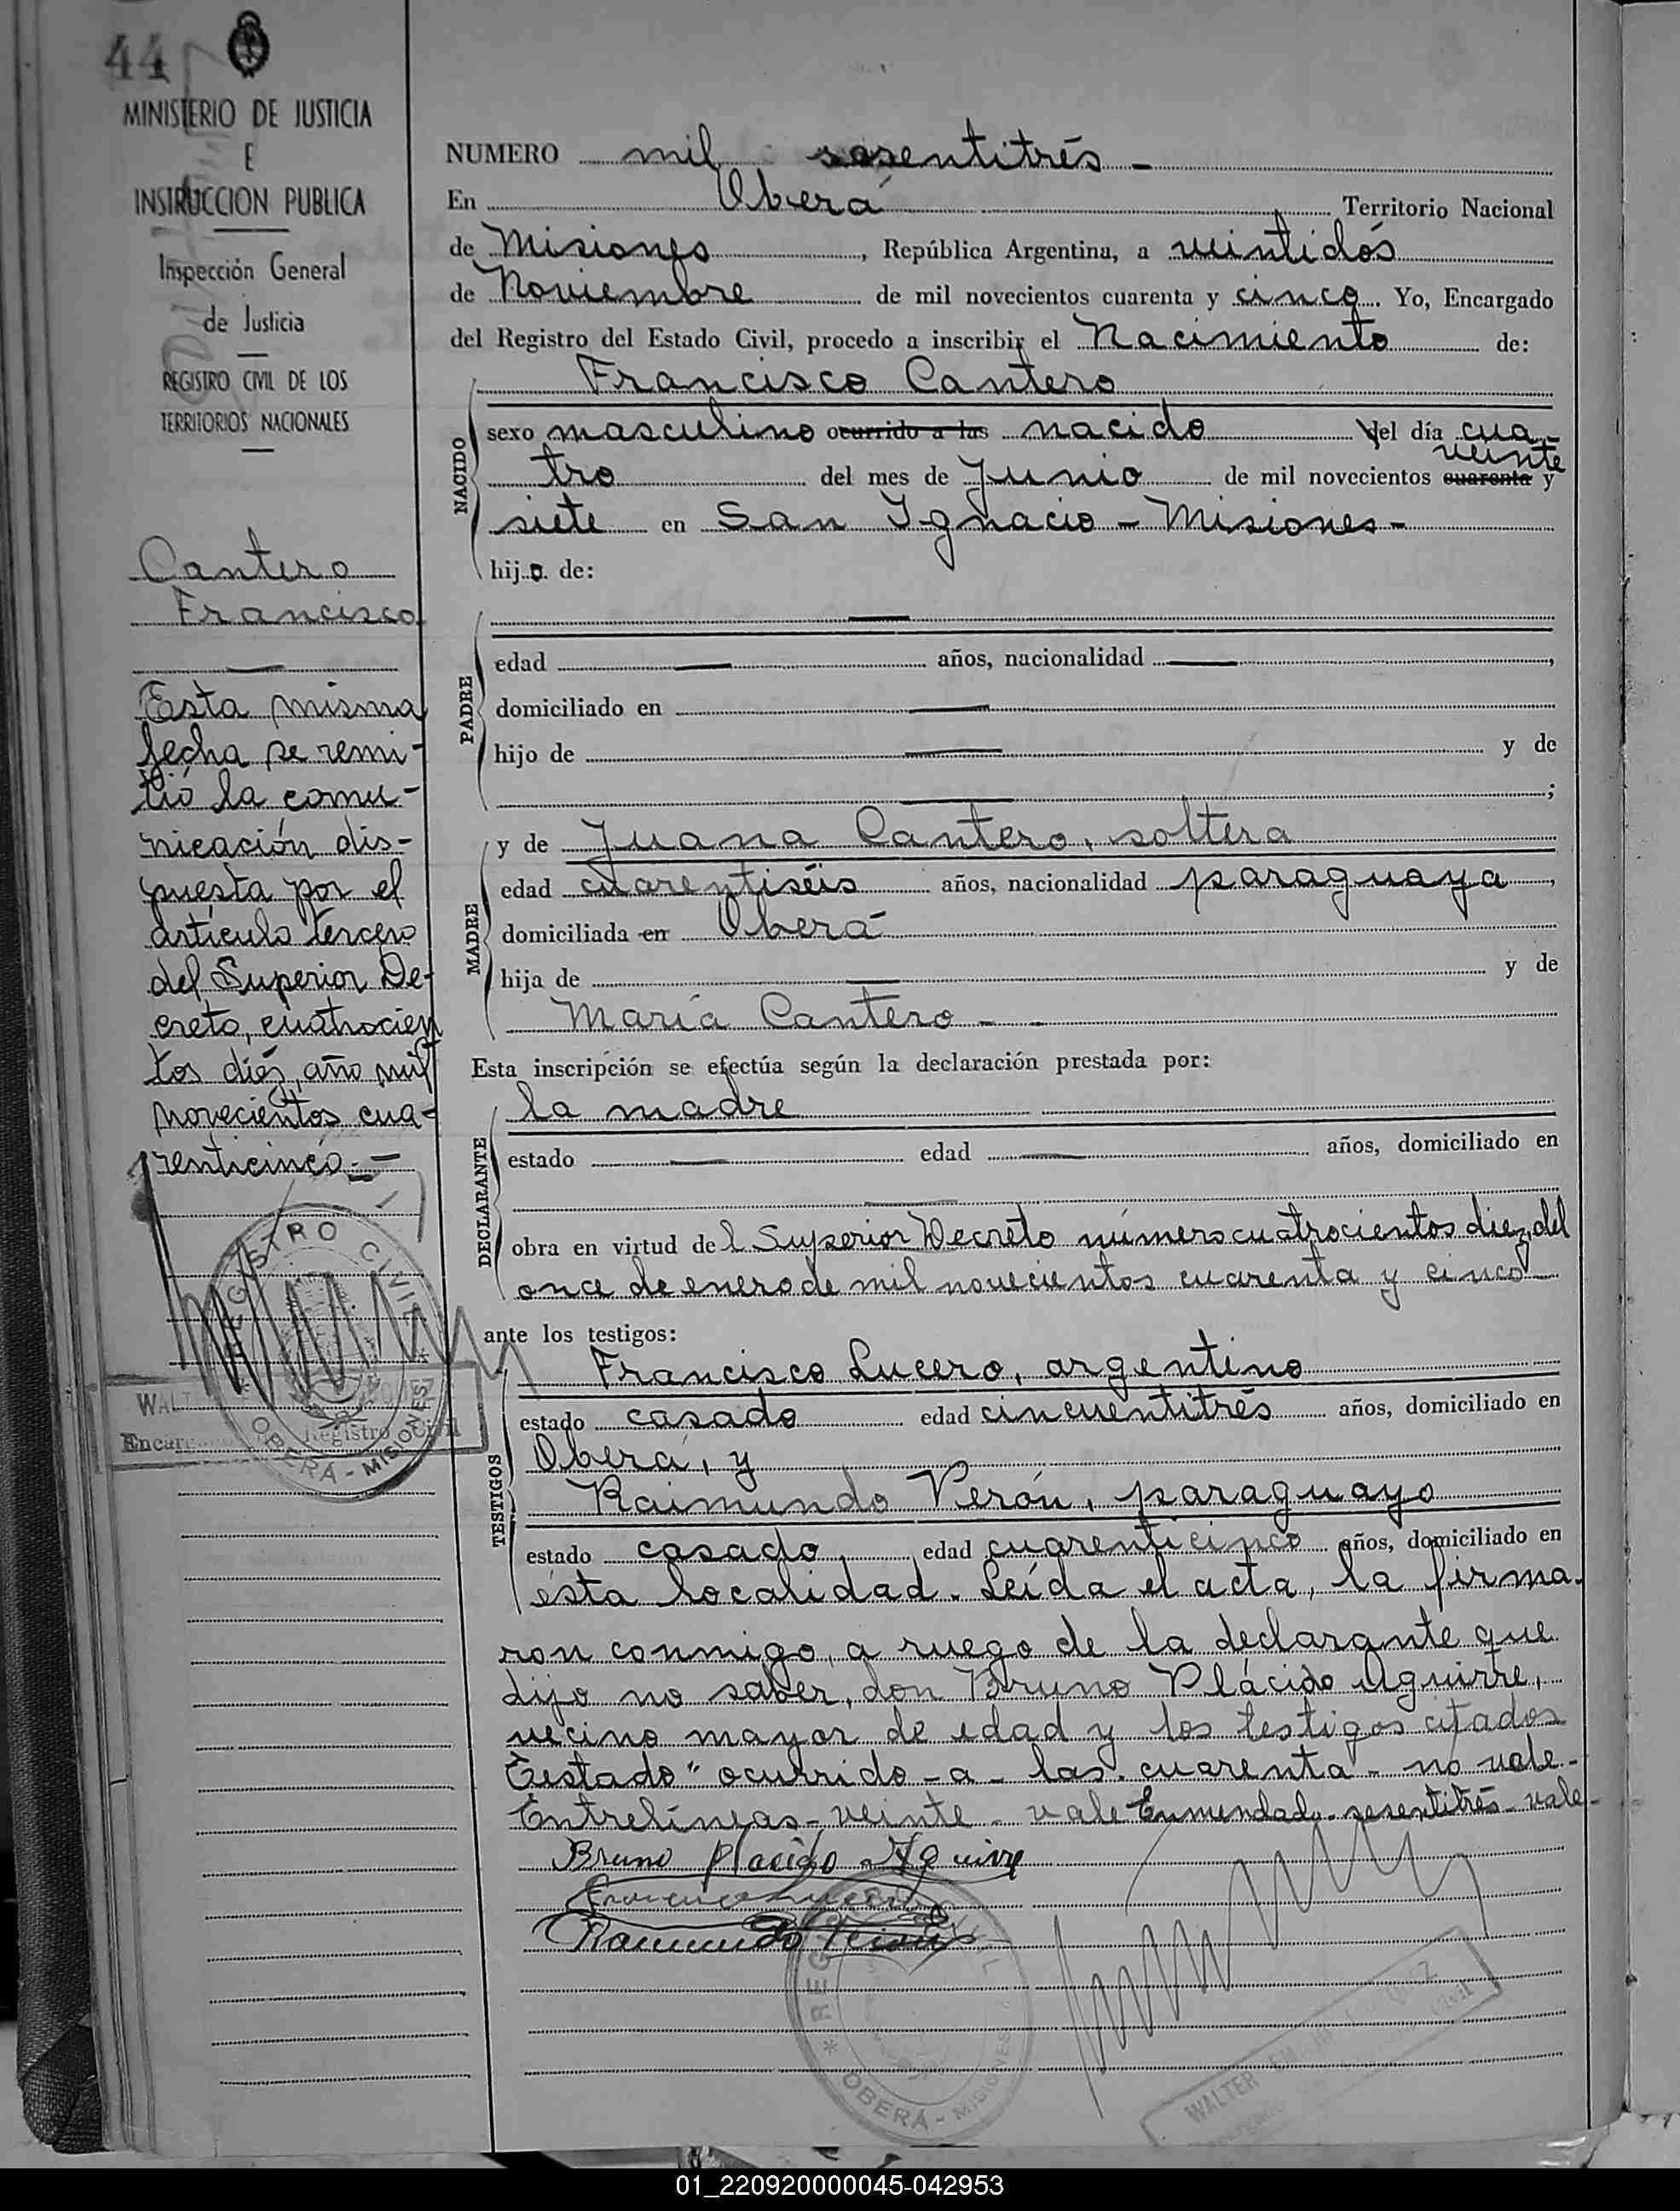 44
MINISTERIO DE JUSTICIA
E
INSTRUCCION PUBLICA
Inspección General
de Justicia
REGISTRO CIVIL DE LOS
TERRITORIOS NACIONALES
Cantero
Francisco
Esta misma
fecha se remi-
tió la comu-
nicación dis-
puesta por el
artículo tercero
del Superior De-
creto, cuatrocien
tos diés, año mil
novecientos cua-
renticinco.-
REGISTRO CIVIL
OBERÁ - MISIONES
WALT
Encar Registro Civil
NUMERO mil sesentitrés -
En Oberá Territorio Nacional
de Misiones, República Argentina, a veintidós
de Noviembre de mil novecientos cuarenta y cinco. Yo, Encargado
del Registro del Estado Civil, procedo a inscribir el Nacimiento de:
NACIDO
Francisco Cantero
sexo masculino ocurrido a las nacido del día cua-
veinte
tro del mes de Junio de mil novecientos cuarenta y
siete en San Ignacio - Misiones -
hijo de:
PADRE
edad años, nacionalidad ,
domiciliado en
hijo de y de
;
MADRE
y de Juana Cantero, soltera
edad cuarentiséis años, nacionalidad paraguaya,
domiciliada en Oberá
hija de y de
María Cantero -
Esta inscripción se efectúa según la declaración prestada por:
DECLARANTE
la madre
estado edad años, domiciliado en
obra en virtud del Superior Decreto número cuatrocientos diez, del
once de enero de mil novecientos cuarenta y cinco
ante los testigos:
TESTIGOS
Francisco Lucero, argentino
estado casado edad cincuentitrés años, domiciliado en
Oberá, y
Raimundo Verón, paraguayo
estado casado, edad cuarenticinco años, domiciliado en
ésta localidad. Leída el acta, la firma.
ron conmigo, a ruego de la declarante que
dijo no saber, don Bruno Plácido Aguirre,
vecino mayor de edad y los testigos citados
Testado" ocurrido - a - las. cuarenta - no vale -
Entrelíneas - veinte - vale Enmendado - sesentitrés - vale -
Bruno Placido Aguirre
Francisco Lucero
Raimundo Verón
REGISTRO CIVIL
OBERÁ - MISIONES
WALTER
Civil
01_220920000045-042953